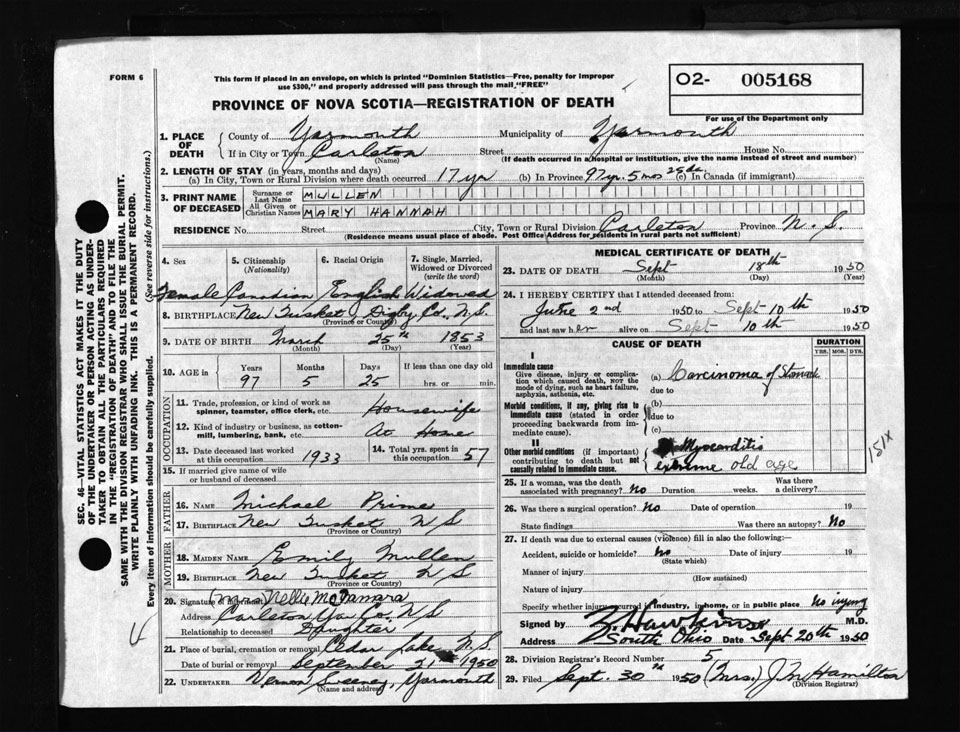 FORM 6
This form if placed in an envelope, on which is printed "Dominion Statistics—Free, penalty for improper
use $300," and properly addressed will pass through the mail "FREE"
PROVINCE OF NOVA SCOTIA—REGISTRATION OF DEATH
O2- 005168
For use of the Department only
1. PLACE OF DEATH
County of Yarmouth Municipality of Yarmouth
If in City or Town Carleton Street House No.
(Name) (If death occurred in a hospital or institution, give the name instead of street and number)
2. LENGTH OF STAY (in years, months and days)
(a) In City, Town or Rural Division where death occurred 17 yr (b) In Province 97 yr. 5 mos 25 ds. (c) In Canada (if immigrant)
3. PRINT NAME OF DECEASED
Surname or Last Name MULLEN
All Given or Christian Names MARY HANNAH
RESIDENCE No. Street City, Town or Rural Division Carleton Province N.S.
(Residence means usual place of abode. Post Office Address for residents in rural parts not sufficient)
SEC. 46—VITAL STATISTICS ACT MAKES IT THE DUTY
OF THE UNDERTAKER OR PERSON ACTING AS UNDER-
TAKER TO OBTAIN ALL THE PARTICULARS REQUIRED
IN THE "REGISTRATION OF DEATH" AND TO FILE THE
SAME WITH THE DIVISION REGISTRAR WHO SHALL ISSUE THE BURIAL PERMIT.
WRITE PLAINLY WITH UNFADING INK. THIS IS A PERMANENT RECORD.
Every item of information should be carefully supplied. (See reverse side for instructions.)
4. Sex 5. Citizenship (Nationality) 6. Racial Origin 7. Single, Married, Widowed or Divorced (write the word)
Female Canadian English Widowed
8. BIRTHPLACE New Tusket, Digby Co., N.S.
(Province or Country)
9. DATE OF BIRTH March 25th 1853
(Month) (Day) (Year)
10. AGE in Years Months Days If less than one day old
97 5 25 hrs. or min.
OCCUPATION
11. Trade, profession, or kind of work as
spinner, teamster, office clerk, etc. Housewife
12. Kind of industry or business, as cotton-
mill, lumbering, bank, etc. At Home
13. Date deceased last worked at this occupation 1933 14. Total yrs. spent in this occupation 57
15. If married give name of wife
or husband of deceased
FATHER
16. NAME Michael Prime
17. BIRTHPLACE New Tusket N S
(Province or Country)
MOTHER
18. MAIDEN NAME Emily Mullen
19. BIRTHPLACE New Tusket N S
(Province or Country)
20. Signature of informant (Mrs) Nellie McNamara
Address Carleton Yar. Co. N S
Relationship to deceased Daughter
21. Place of burial, cremation or removal Cedar Lake N.S.
Date of burial or removal September 21 1950
22. UNDERTAKER Vernon Sweeney, Yarmouth
(Name and address)
MEDICAL CERTIFICATE OF DEATH
23. DATE OF DEATH Sept 18th 1950
(Month) (Day) (Year)
24. I HEREBY CERTIFY that I attended deceased from:
June 2nd 1950 to Sept 10th 1950
and last saw her alive on Sept 10th 1950
CAUSE OF DEATH DURATION
YRS. MOS. DYS.
I
Immediate cause
Give disease, injury or complica-
tion which caused death, NOT the
mode of dying, such as heart failure,
asphyxia, asthenia, etc.
(a) Carcinoma of Stomach
due to
Morbid conditions, if any, giving rise to
immediate cause (stated in order
proceeding backwards from im-
mediate cause).
(b)
due to
(c)
II
Other morbid conditions (if important)
contributing to death but not
causally related to immediate cause.
Myocarditis
extreme old age
151X
25. If a woman, was the death associated with pregnancy? No Duration weeks. Was there a delivery?
26. Was there a surgical operation? No Date of operation 19
State findings Was there an autopsy? No
27. If death was due to external causes (violence) fill in also the following:—
Accident, suicide or homicide? No Date of injury 19
(State which)
Manner of injury
(How sustained)
Nature of injury
Specify whether injury occurred in industry, in home, or in public place No injury
Signed by Z. Hawkins M.D.
Address South Ohio Date Sept 20th 1950
28. Division Registrar's Record Number 5
29. Filed Sept. 30th 1950 (Mrs.) J. M. Hamilton
(Division Registrar)